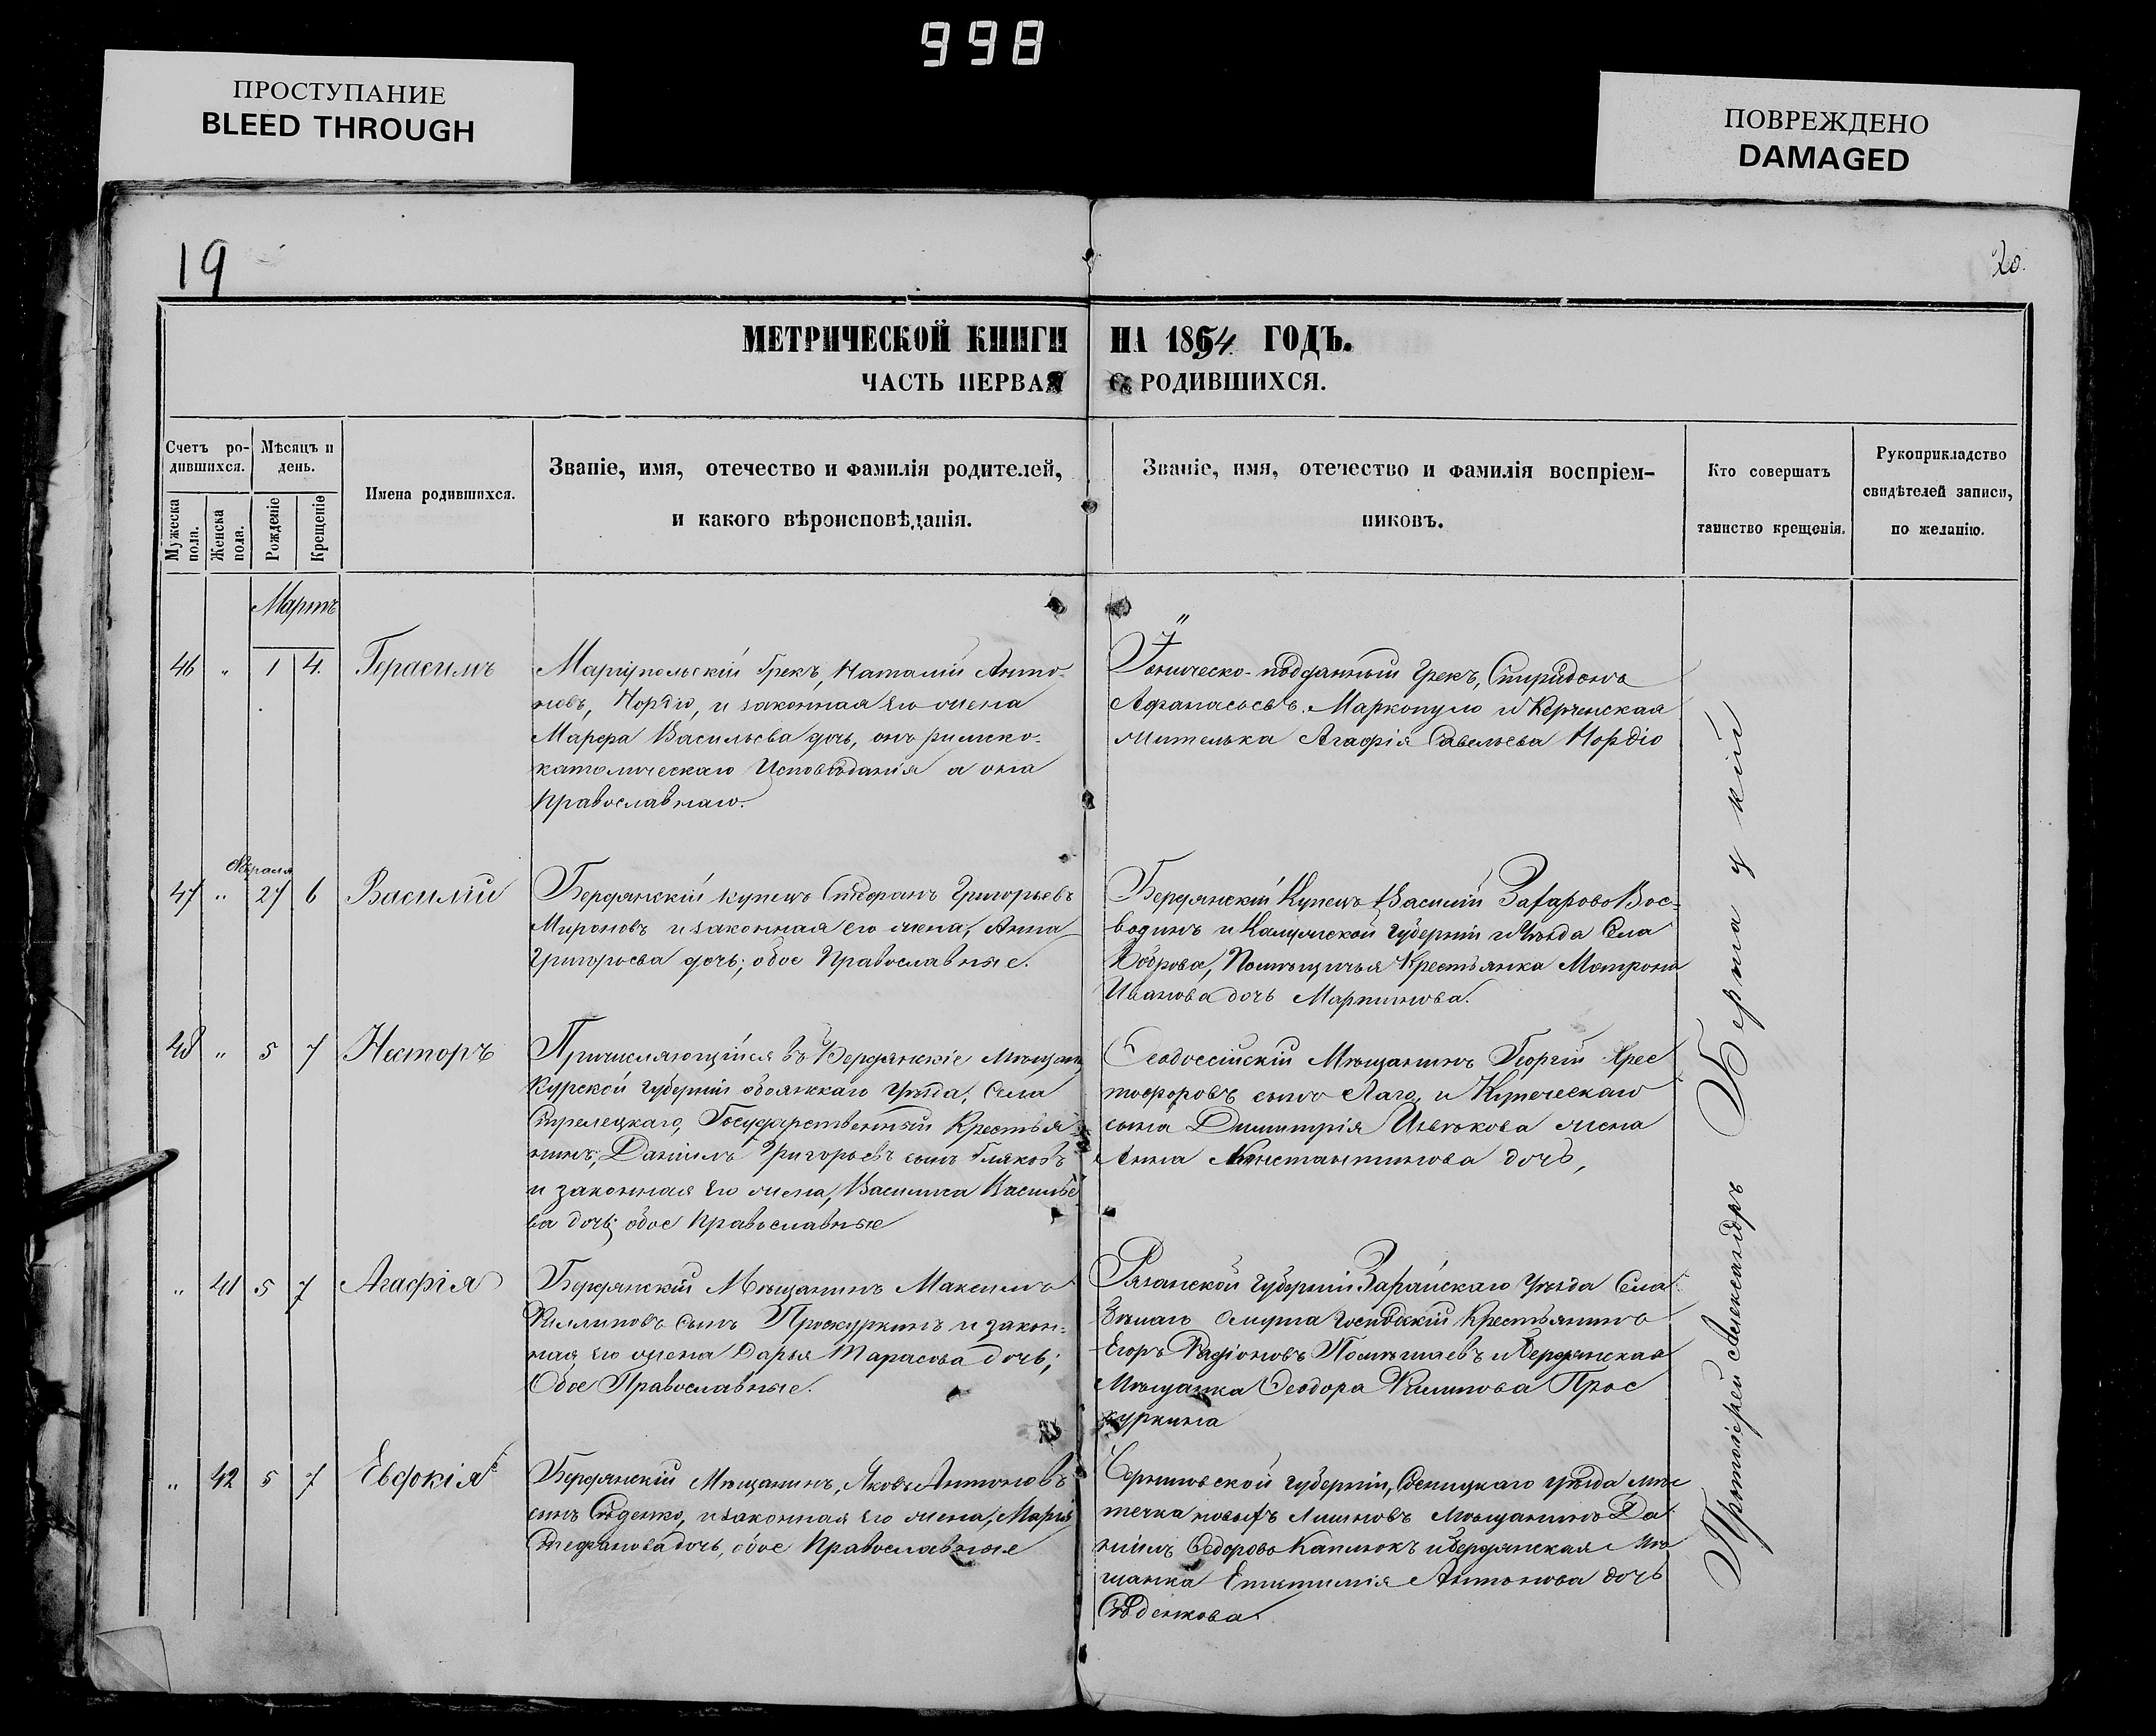 998
ПРОСТУПАНИЕ
BLEED THROUGH
ПОВРЕЖДЕНО
DAMAGED
19
20.
МЕТРИЧЕСКОЙ КНИГИ НА 1864 ГОДЪ.
ЧАСТЬ ПЕРВАЯ О РОДИВШИХСЯ.
Счетъ ро-
дившихся.
Мужеска пола.
Женска пола.
Мѣсяцъ и
день.
Рожденіе
Крещеніе
Имена родившихся.
Званіе, имя, отечество и фамилія родителей,
и какого вѣроисповѣданія.
Званіе, имя, отечество и фамилія воспріем-
никовъ.
Кто совершатъ
таинство крещенія.
Рукоприкладство
свидѣтелей записи,
по желанію.
Мартъ
46 " 1 4. Герасимъ
Маріупольскій Грекъ, Наталій Анто-
новъ, и законная его жена
Марфа Васильева дочь, онъ римско-
католическаго Исповѣданія а она
Православнаго.
Іоническо-подданный Грекъ, Спиридонъ
Афанасьевъ Маркопуло и Керченская
жителька Агафія Савельева
Февраля
47 " 27 6 Василій
Бердянскій купецъ Стефанъ Григорьевъ
Мироновъ и законная его жена, Анна
Григорьева дочь; обое Православные.
Бердянскій Купецъ Василій Захаровъ Вос-
водинъ и Калужской Губерніи и Уѣзда Села
Боброва, Помѣщичья Крестьянка Матрона
Иванова дочь Мартинова.
48 " 5 7 Несторъ
Причисляющійся въ Бердянскіе Мѣщане
Курской Губерніи обоянскаго Уѣзда, Села
Стрелецкаго, Государственный Крестья
нинъ, Даніилъ Григорьевъ сынъ Гляковъ
и законная его жена, Василиса Василье
ва дочь; обое Православные
Ѳеодоссійскій Мѣщанинъ Георгій Хрис
тофоровъ сынъ Лаго, и Купеческаго
сына Димитрія жена
Анна Константинова дочь,
" 41 5 7 Агафія
Бердянскій Мѣщанинъ Максимъ
Филиповъ сынъ Проскуркинъ и закон-
ная его жена Дарья Тарасова дочь;
Обое Православные.
Рязанской Губерніи Зарайскаго Уѣзда Села
Крестьянинъ
Егоръ Родіоновъ и Бердянская
Мѣщанка Ѳеодора Филипова Прос
куркина
" 42 5 7 Евдокія
Бердянскій Мѣщанинъ, Яковъ Антоновъ
сынъ Сѣденко, и законная его жена, Марія
Стефанова дочь, обое Православные
Черниговской Губерніи, Сосницкаго уѣзда мѣс
течка новыхъ Млиновъ Мѣщанинъ Да
ніилъ Ѳедоровъ Каплюкъ и Бердянская Мѣ
щанка Епистимія Антонова дочь
Сѣденкова.
Протоіерей Александръ Сербинавскій